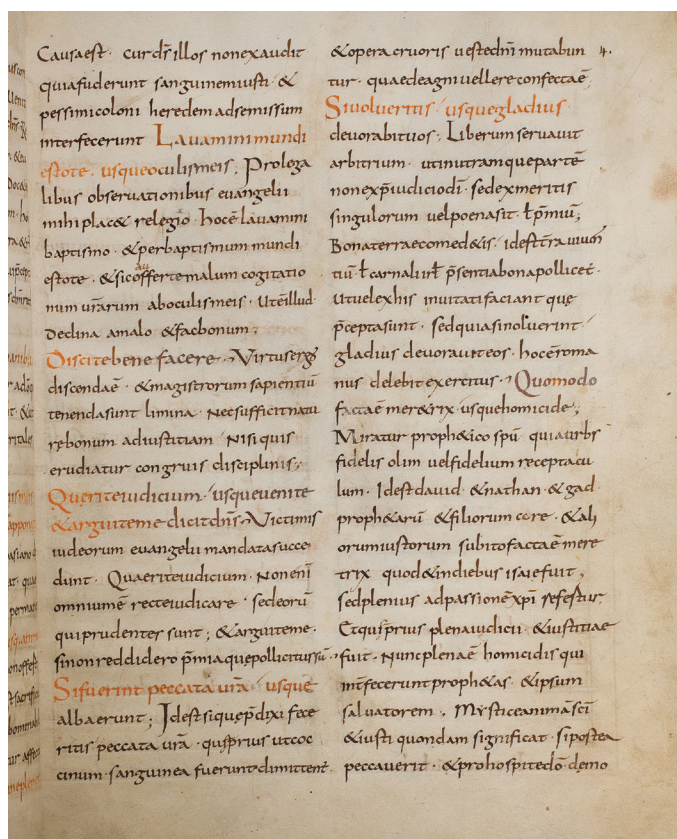 Causa est · cur dn̄s illos non exaudit
quia fuderunt sanguinem iusti · &
pessimi coloni heredem ad semissum
interfecerunt Lavamini mundi
estote · usque oculis meis ; Prolega
libus observationibus evangelii
mihi plac& relegio · hoc ē lavamini
baptismo · & per baptismum mundi
estote · & sic offerte malum cogitatio
num vr̄arum ab oculis meis · Ut & illud·
Declina a malo & fac bonum ;
Discite bene facere · Virtus ergo
discenda ē · & magistrorum sapientiū
tenenda sunt limina · Nec sufficit natu
rę bonum ad iustitiam · Nisi quis
erudiatur congruis disciplinis ;
Querite iudicium · usque venite
& arguite me dicit dn̄s · Victimis
iudeorum evangelii mandata succe
dunt · Quaerite iudicium · Non enī
omnium ē recte iudicare · sed eorū
qui prudentes sunt ; & arguite me ·
si non reddidero p̄mia que pollicitus sū·
Si fuerint peccata vr̄a · usque
alba erunt ; Id est si que p̄dixi fece
ritis peccata vr̄a · qu p̄rius ut coc
cinum · sanguinea fuerunt dimittent·
4.
& opera cruoris veste dn̄i mutabun
tur · quae de agni vellere confecta ē;
Si volueritis · usque gladius
devorabit vos ; Liberum servavit
arbitrium · ut in utramque partē
non ex p̄iudicio dī · sed ex meritis
singulorum vel poena sit · ł p̄miū;
Bona terrae comed&is · id est tr̄a vivē
tiū ł carnali ut p̄sentia bona pollicet·
Ut vel ex his invitati faciant quę
p̄cepta sunt · sed quia si noluerint ·
gladius devoravit eos · hoc ē roma
nus delebit exercitus · Quomodo
facta ē mer&rix · usque homicide ;
Miratur proph&ico sp̄u · quia urbs
fidelis olim vel fidelium receptacu
lum · Id est david · & nathan · & gad
proph&arū & filiorum core · & ali
orum iustorum subito facta ē mere
trix quod & in diebus isaie fuit ,
sed plenius ad passionē xp̄i refestur
Et qu p̄rius plena iudicii · & iustitiae
fuit · Nunc plena ē homicidis qui
int̄fecerunt proph&as · & ipsum
salvatorem · Mystice animā s̄ci
& iusti quondam significat · si postea
peccaverit · & pro hospite dō demo